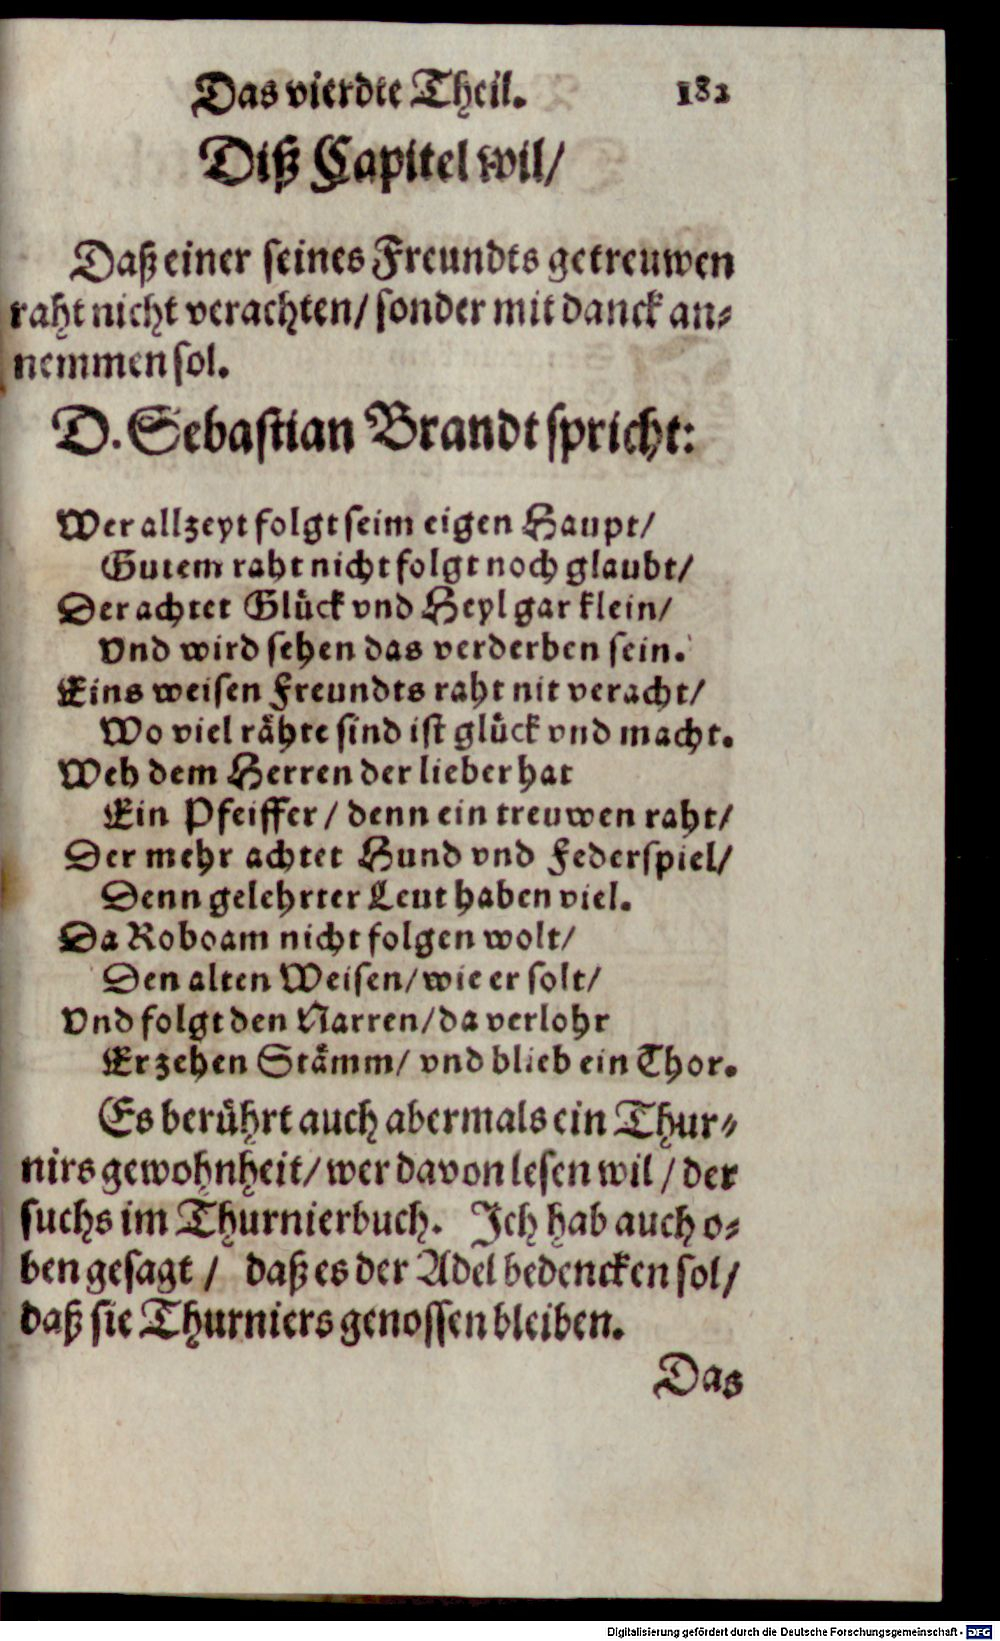 Das vierdte Theil. 182
Diß Capitel wil/
Daß einer seines Freundts getreuwen
raht nicht verachten/ sonder mit danck an-
nemmen sol.
D. Sebastian Brandt spricht:
Wer allzeyt folgt seim eigen Haupt/
Gutem raht nicht folgt noch glaubt/
Der achtet Glück vnd Heyl gar klein/
Vnd wird sehen das verderben sein.
Eins weisen Freundts raht nit veracht/
Wo viel rähte sind ist glück vnd macht.
Weh dem Herren der lieber hat
Ein Pfeiffer/ denn ein treuwen raht/
Der mehr achtet Hund vnd Federspiel/
Denn gelehrter Leut haben viel.
Da Roboam nicht folgen wolt/
Den alten Weisen/ wie er solt/
Vnd folgt den Narren/ da verlohr
Er zehen Stämm/ vnd blieb ein Thor.
Es berührt auch abermals ein Thur-
nirs gewohnheit/ wer davon lesen wil/ der
suchs im Thurnierbuch. Ich hab auch o-
ben gesagt/ daß es der Adel bedencken sol/
daß sie Thurniers genossen bleiben.
Das
Digitalisierung gefördert durch die Deutsche Forschungsgemeinschaft - DFG